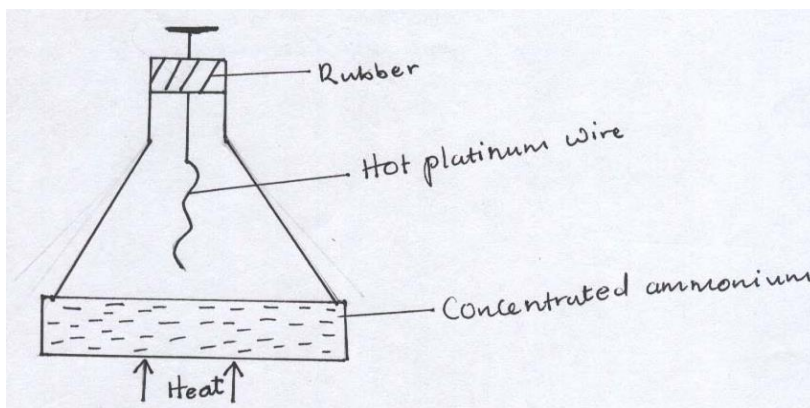 Rubber
Hot platinum wire
Concentrated ammonium
Heat